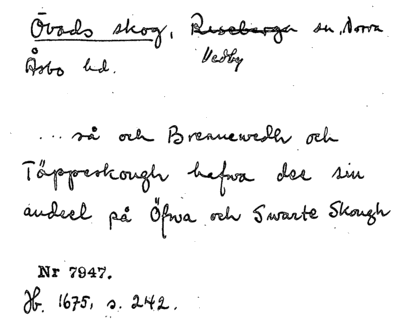 Övads skog, Riseberga sn, Norra
Vedby
Åsbo hd.
... så och Brennewedh och
Täppeskough hafwa dee sin
andeel på Öfwa och Swarte Skough
Nr 7947.
Jb. 1675, s. 242.